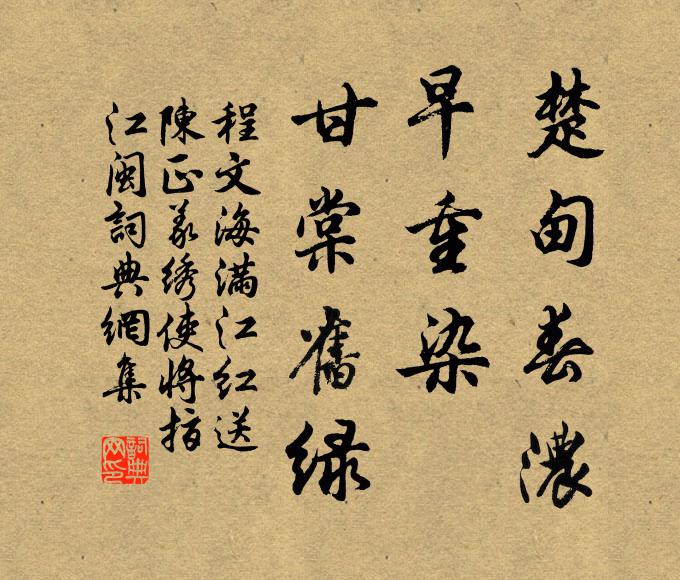 楚甸春濃
早重染
甘棠舊绿
程文海滿江紅送
陳正義绣使將指
江閩詞典網集
詞典网印